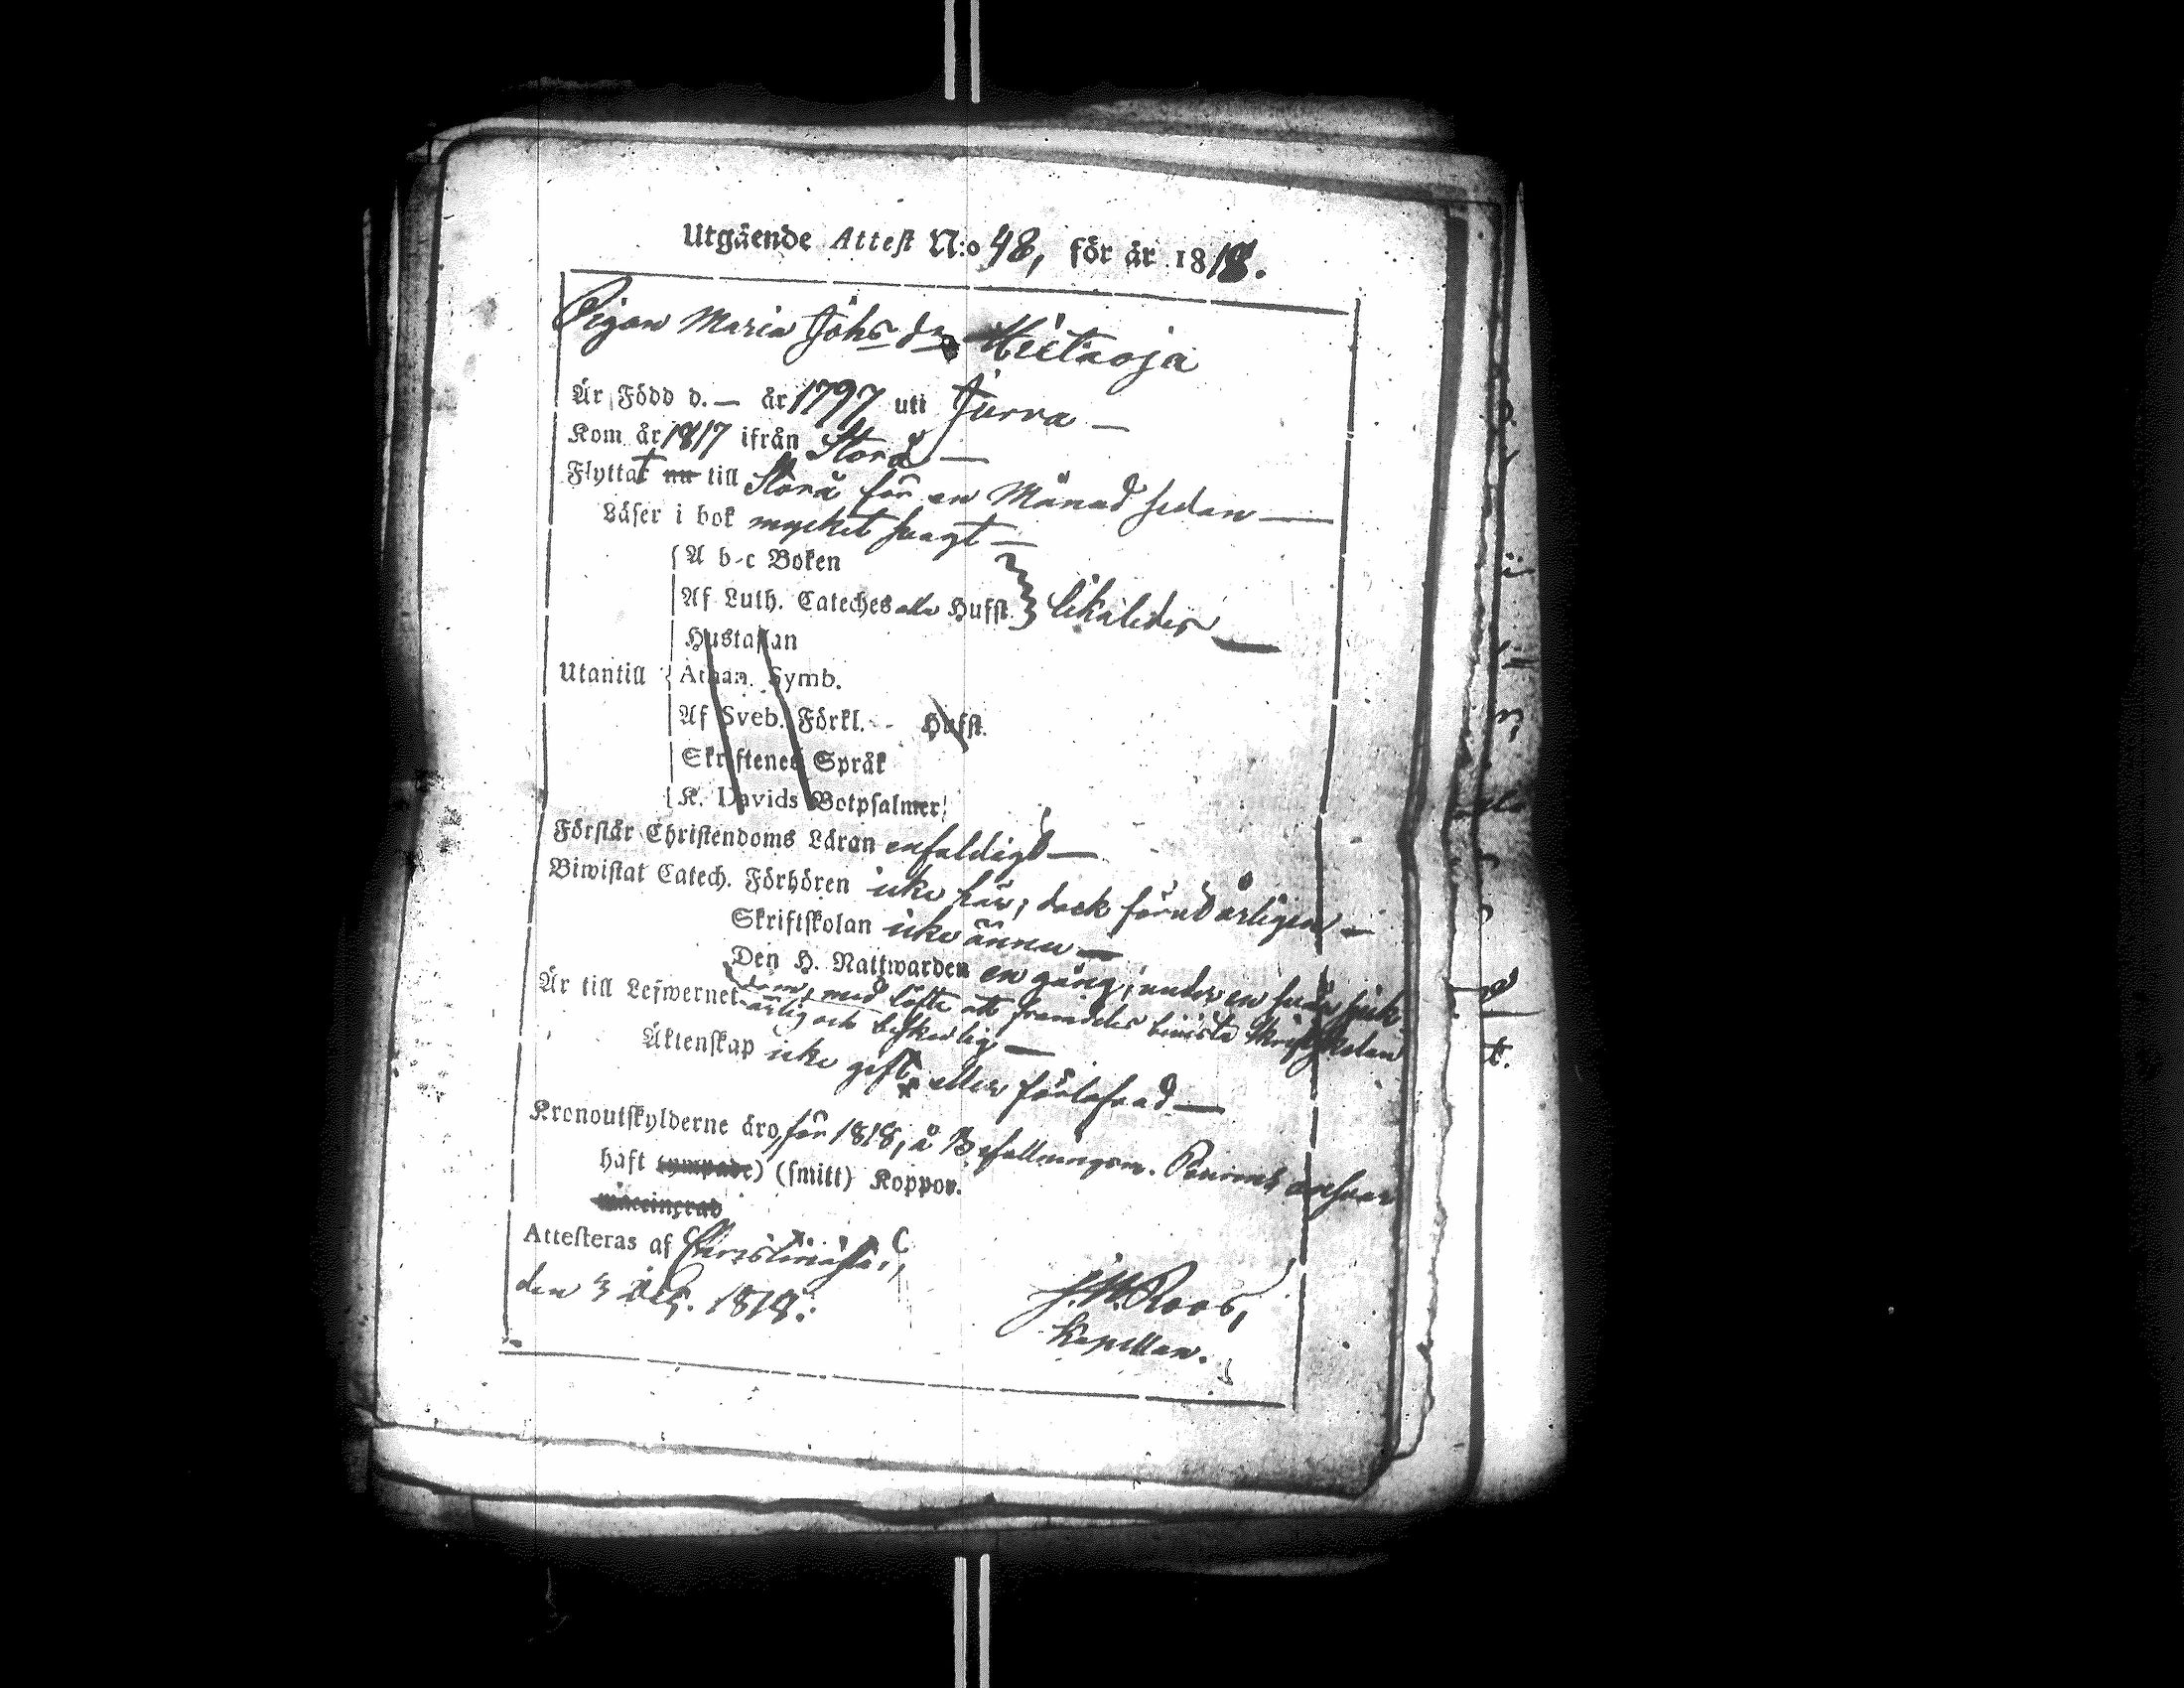 Utgående Attest N:o 48, för år 1818.
Pigan Maria Johs dr Hietaoja
Är Född d. — år 1797 uti Jurva —
Kom år 1817 ifrån Storå —
Flyttat nu till Storå för en Månad sedan —
Läser i bok mycket svagt —
A b-c Boken
Af Luth. Cateches alla Hufst. likaledes —
Hustaflan
Utantill Athan. Symb.
Af Sveb. Förkl. - - Hufst.
Skriftenes Språk
K. Davids Botpsalmer
Förstår Christendoms Läran enfaldigt —
Biwistat Catech. Förhören icke här, dock förut årligen —
Skriftskolan icke ännu —
Den H. Nattwarden en gång, under en svår sjuk-
dom, med löfte att framdeles bivista Skriftskolan
Är till Lefwernet ärlig och beskedlig —
Äktenskap icke gift eller förlofvad —
Kronoutskylderne äro för 1818, å Befallningsm. ansvar
haft (smitt) Koppor.
Attesteras af Christinæstad,
den 3 Dec. 1818.
J. M. Roos,
Kapellan.